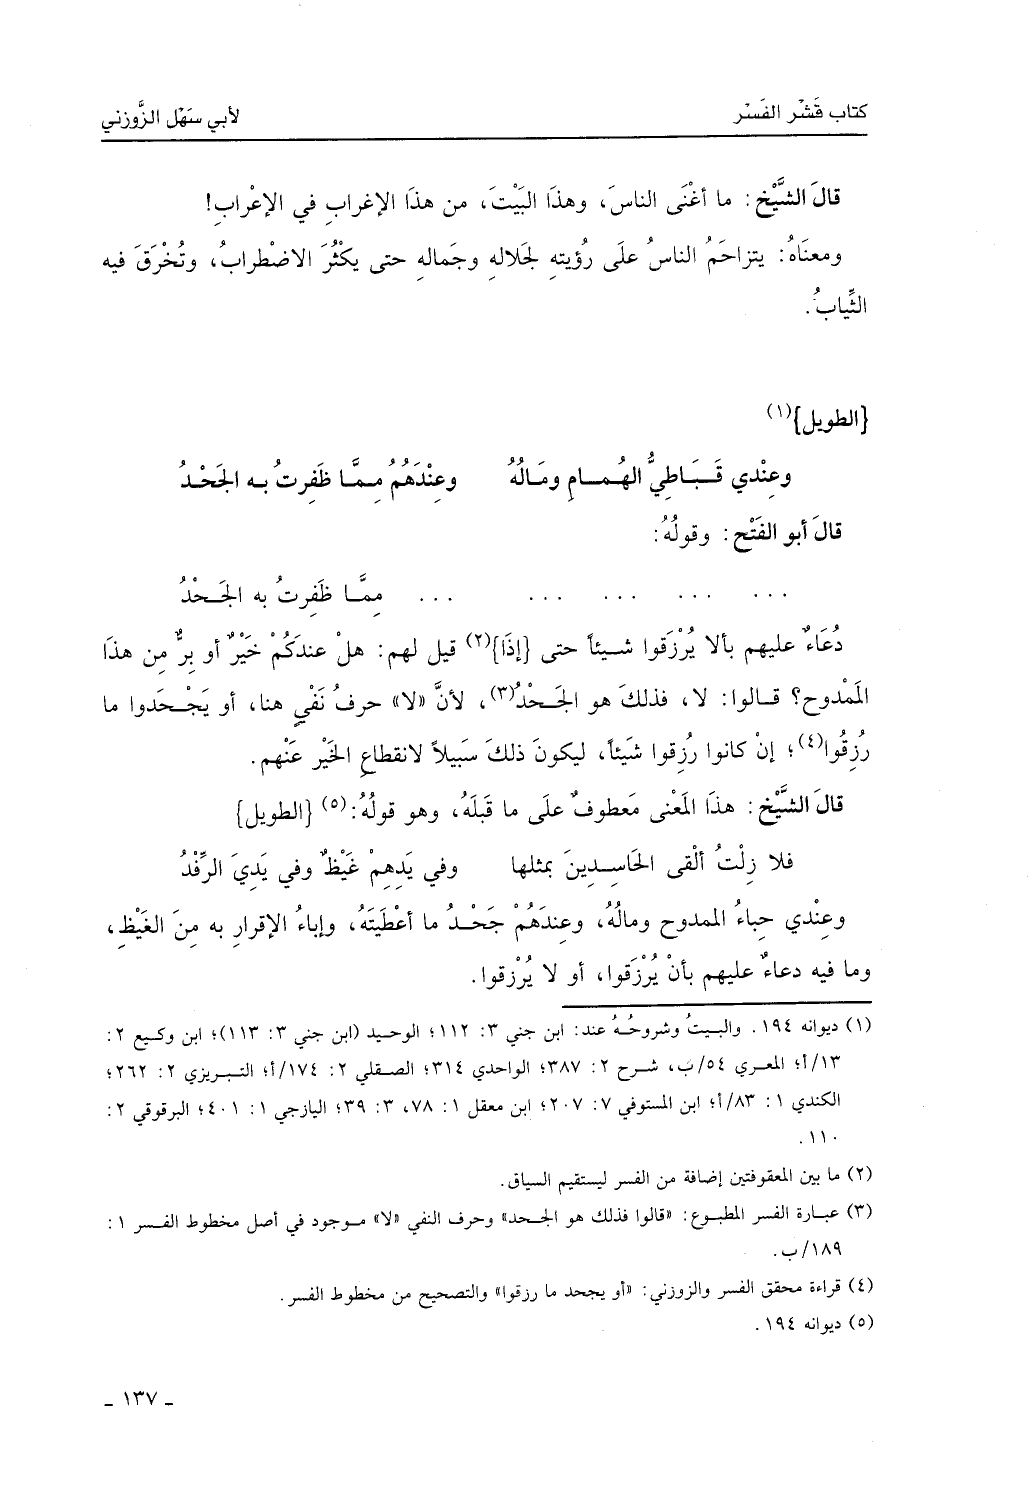 كتاب قَشْر الفَسْر لأبي سَهْل الزَّوزني
قالَ الشَّيْخ: ما أغْنَى الناسَ، وهذَا البَيْتَ، من هذَا الإغرابِ في الإعْرابِ!
ومعنَاهُ: يتزاحَمُ الناسُ علَى رُؤيتهِ لجَلالهِ وجَمالهِ حتى يكْثُرَ الاضْطرابُ، وتُخْرَقَ فيه
الثِّيابُ.
{الطويل}(١)
وعِنْدي قَبَاطِيُّ الهُمامِ ومَالُهُ وعِنْدَهُمُ مِمَّا ظَفِرتُ به الجَحْدُ
قالَ أبو الفَتْح: وقولُهُ:
... ... ... ... ... مِمَّا ظَفِرتُ به الجَحْدُ
دُعَاءٌ عليهم بألا يُرْزَقوا شيئاً حتى {إذَا}(٢) قيل لهم: هلْ عندكَمُ خَيْرٌ أو بِرٌّ مِن هذَا
المَمْدوح؟ قالوا: لا، فذلكَ هو الجَحْدُ(٣)، لأنَّ «لا» حرفُ نَفْي هنا، أو يَجْحَدوا ما
رُزِقُوا(٤)؛ إنْ كانوا رُزِقوا شَيئاً، ليكونَ ذلكَ سَبيلاً لانقطاع الخَيْر عَنْهم.
قالَ الشَّيْخ: هذَا المَعْنى مَعطوفٌ علَى ما قَبلَهُ، وهو قولُهُ:(٥) {الطويل}
فلا زِلْتُ ألْقى الحَاسِدِينَ بمثلها وفي يَدِهِمْ غَيْظٌ وفي يَدِيَ الرِّفْدُ
وعِنْدي حِباءُ الممدوح ومالُهُ، وعِندَهُمْ جَحْدُ ما أعْطَيَتَهُ، وإباءُ الإقرارِ به مِنَ الغَيْظِ،
وما فيه دعاءٌ عليهم بأنْ يُرْزَقوا، أو لا يُرْزقوا.
(١) ديوانه ١٩٤. والبيتُ وشروحُهُ عند: ابن جني ٣: ١١٢؛ الوحيد (ابن جني ٣: ١١٣)؛ ابن وكيع ٢:
١٣/أ؛ المعري ٥٤/ب، شرح ٢: ٣٨٧؛ الواحدي ٣١٤؛ الصقلي ٢: ١٧٤/أ؛ التبريزي ٢: ٢٦٢؛
الكندي ١: ٨٣/أ؛ ابن المستوفي ٧: ٢٠٧؛ ابن معقل ١: ٧٨، ٣: ٣٩؛ اليازجي ١: ٤٠١؛ البرقوقي ٢:
١١٠.
(٢) ما بين المعقوفتين إضافة من الفسر ليستقيم السياق.
(٣) عبارة الفسر المطبوع: «قالوا فذلك هو الجحد» وحرف النفي «لا» موجود في أصل مخطوط الفسر ١:
١٨٩/ب.
(٤) قراءة محقق الفسر والزوزني: «أو يجحد ما رزقوا» والتصحيح من مخطوط الفسر.
(٥) ديوانه ١٩٤.
ـ ١٣٧ ـ